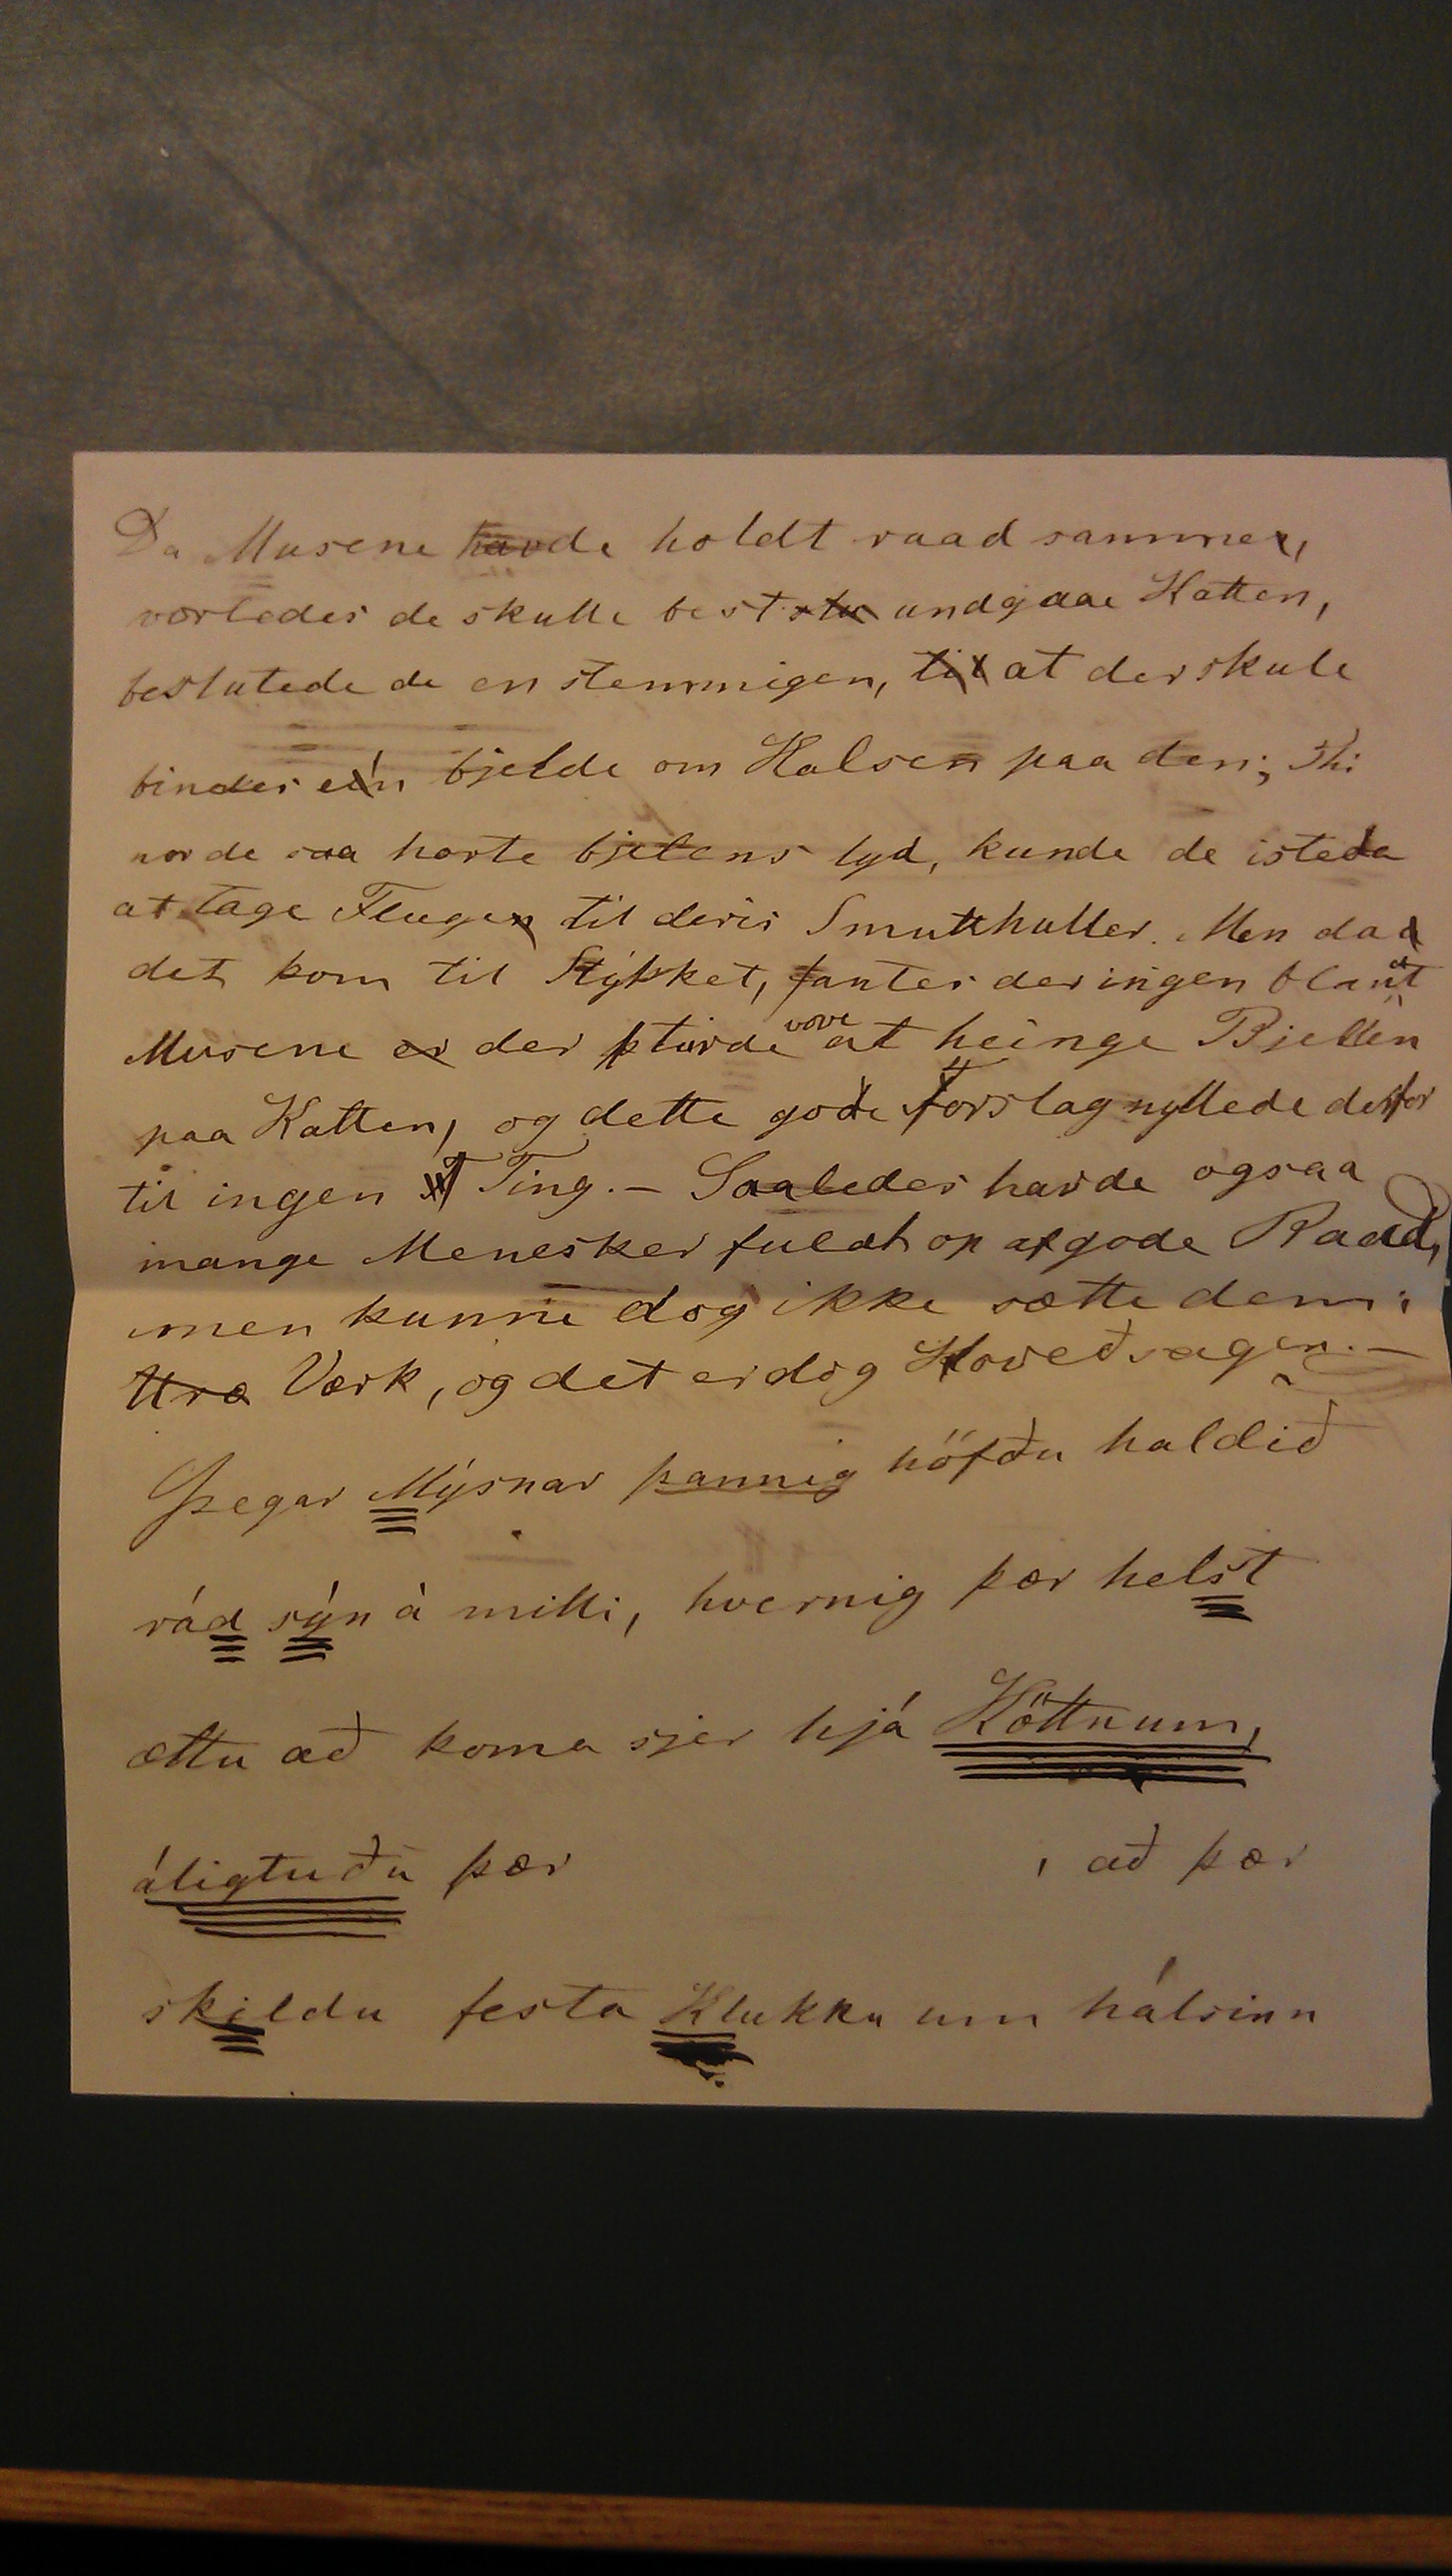 Da Musene havde holdt raad sammen,
vorledes de skulle best undgaae Katten,
beslutede de en stemmigen, at der skule
bindes en bjelde om Halsen paa den; Thi
nor de saa horte bjelens lyd, kunde de isteda
at tage Flugen til deris Smutthuller. Men da
det kom til Stýkket, fantes der ingen blant
Musene der turde vove at heinge Bjellen
paa Katten, og dette gode Forslag nyttede derfor
til ingen Ting. – Saaledes havde ogsaa
mange Menesker fuldt op af gode Raad,
men kunne dog ikke sætte dem i
Værk, og det er dog Hoveðsagen. –
Þegar Mýsnar þannig höfðu haldið
rád sýn á milli, hvernig þær helst
ættu að koma sjer hjá Köttnum,
áligtuðu þær , að þær
skildu festa Klukku um hálsinn